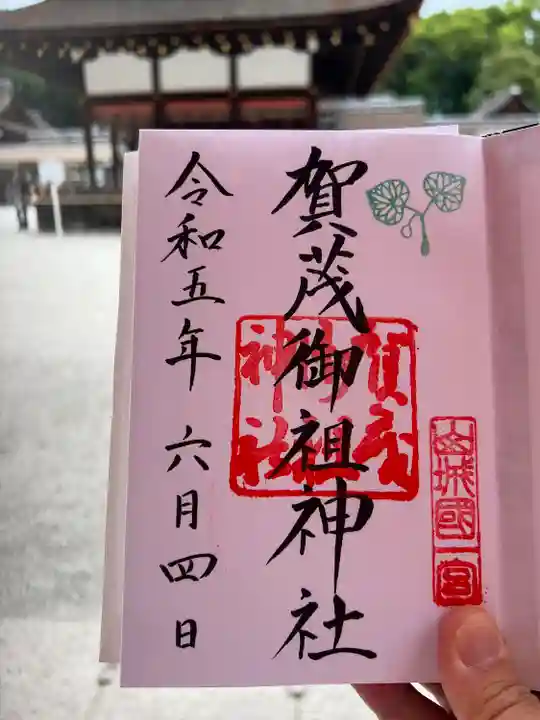 山城國一宮
賀茂御祖神社
賀茂御祖神社
令和五年 六月四日